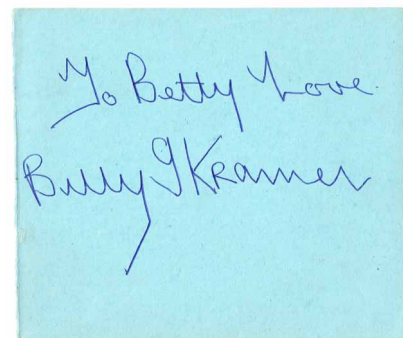 To Betty Love
Billy J Kramer